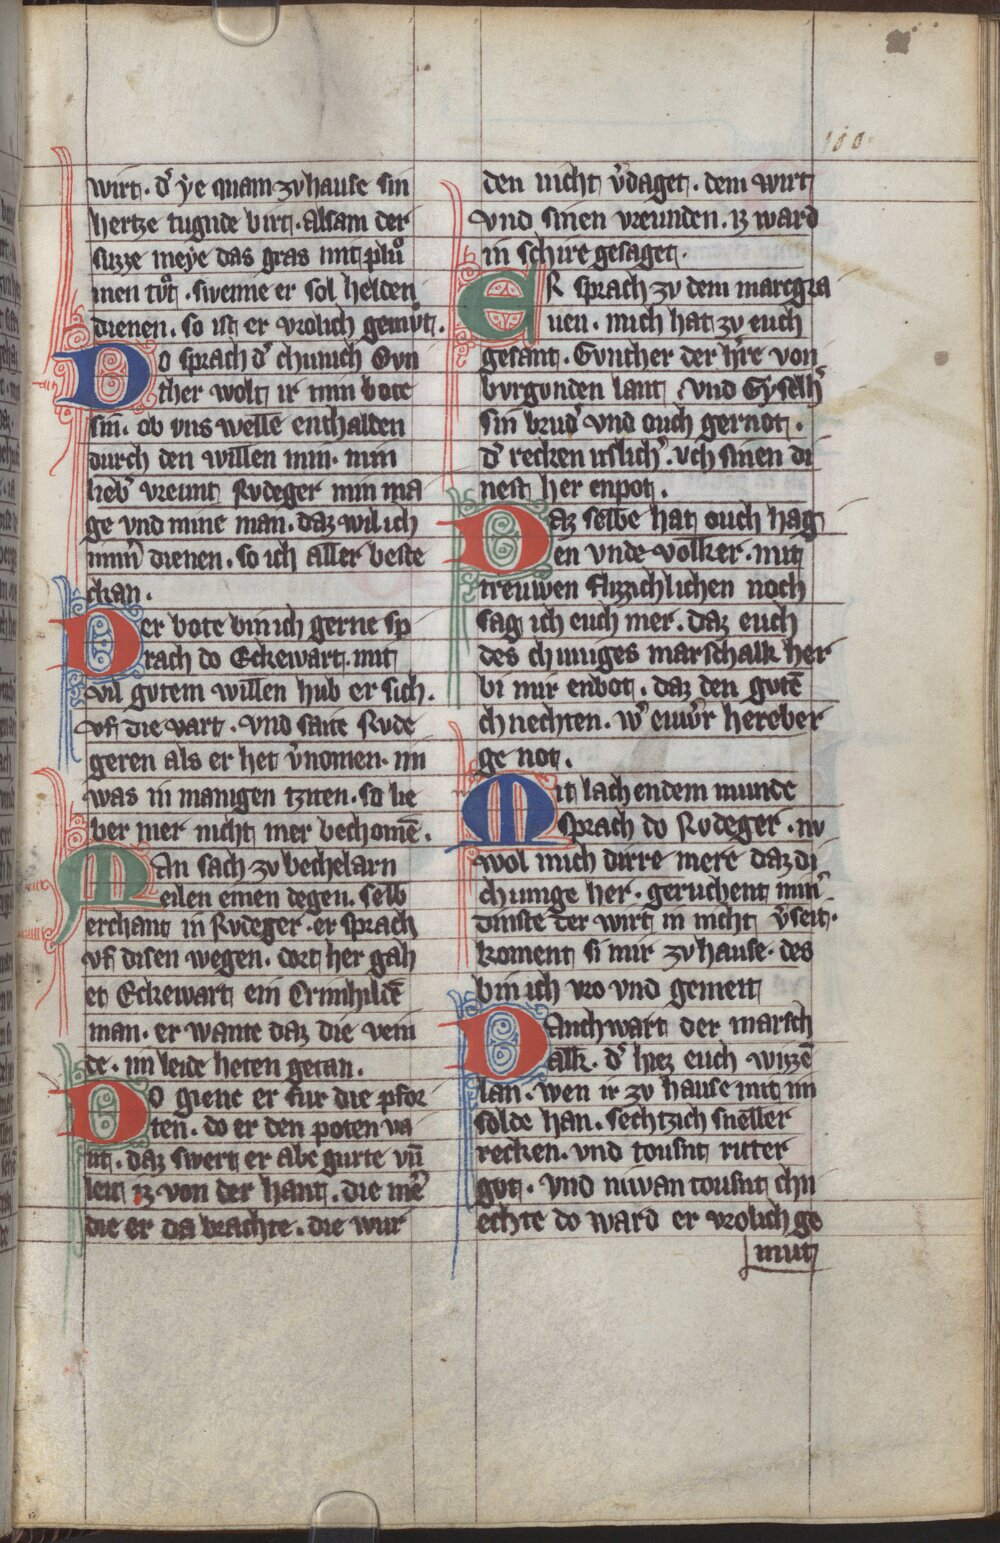 100.
wirt. d᾽ ẏe quam zvhause sin
hertze tugnde birt. alsam der
suzze meẏe das gras mit plů
men tůt. swenne er sol helden
dienen. so ist er vrolich gemvͦt.
Do sprach d᾽ chunich Gvn
ther wolt ir min bote
sin. ob vns welle enthalden
durch den willen min. min
lieb᾽ vreunt Rvdeger min ma
ge vnd mine man. daz wil ich
im᾽ dienen. so ich aller beste
chan.
Der bote bin ich gerne sp
rach do Eckewart. mit
vil gvtem willen hub er sich.
vf die vart. vnd saite Rvde
geren als er het v᾽nomen. im
was in manigen tziten. so lie
ber mer nicht mer bechomē.
Man sach zv bechelarn
eilen einen degen. selb
erchant in Rvdeger. er sprach
vf disen wegen. dort her gah
et Eckewart ein Crimhildē
man. er wante daz die vein
de. im leide heten getan.
Do gienc er fur die pfor
ten. do er den poten va
nt. daz swert er abe gurte vn̄
leit iz von der hant. die me᾽
die er da brachte. die wur
den nicht v᾽daget. dem wirt
vnd sinen vreunden. iz ward
in schire gesaget.
ER sprach zv dem marcgra
uen. mich hat zv euch
gesant. Gvnther der h᾽re von
bvrgonden lant. vnd Gyselh᾽
sin brud᾽ vnd ouch gernot.
d᾽ recken itslich᾽. vch sinen di
nest her enpot.
Daz selbe hat ouch hag
en vnde volker. mit
treuwen flizzichlichen noch
sag ich euch mer. daz euch
des chuniges marschalk her
bi mir enbot. daz den gvtē
chnechten. w᾽ euw᾽r hereber
ge not.
Mit lachendem munde
sprach do Rvdeger. nv
wol mich dirre mere daz di
chunige her. geruchent min᾽
dinste der wirt in nicht v᾽seit.
koment si mir zvhause. des
bin ich vro vnd gemeit
Danchwart der marsch
alk. d᾽ hiez euch wizzē
lan. wen ir zv hause mit im
solde han. sechtzich sneller
recken. vnd tousnt ritter
gvt. vnd niwan tousnt chn
echte do ward er vrolich ge
mut